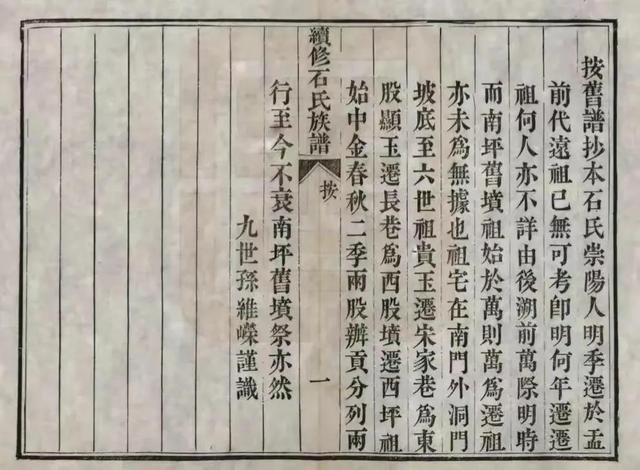 按舊譜抄本石氏崇陽人明季遷於孟
前代遠祖已無可考卽明何年遷遷
祖何人亦不詳由後溯前萬際明時
而南坪舊墳祖始於萬則萬爲遷祖
亦未爲無據也祖宅在南門外洞門
坡底至六世祖貴玉遷宋家巷爲東
股顯玉遷長巷爲西股墳遷西坪祖
始中金春秋二季兩股辦頁分列兩
續修石氏族譜
按
一
行至今不衰南坪舊墳祭亦然
九世孫維嶸謹識